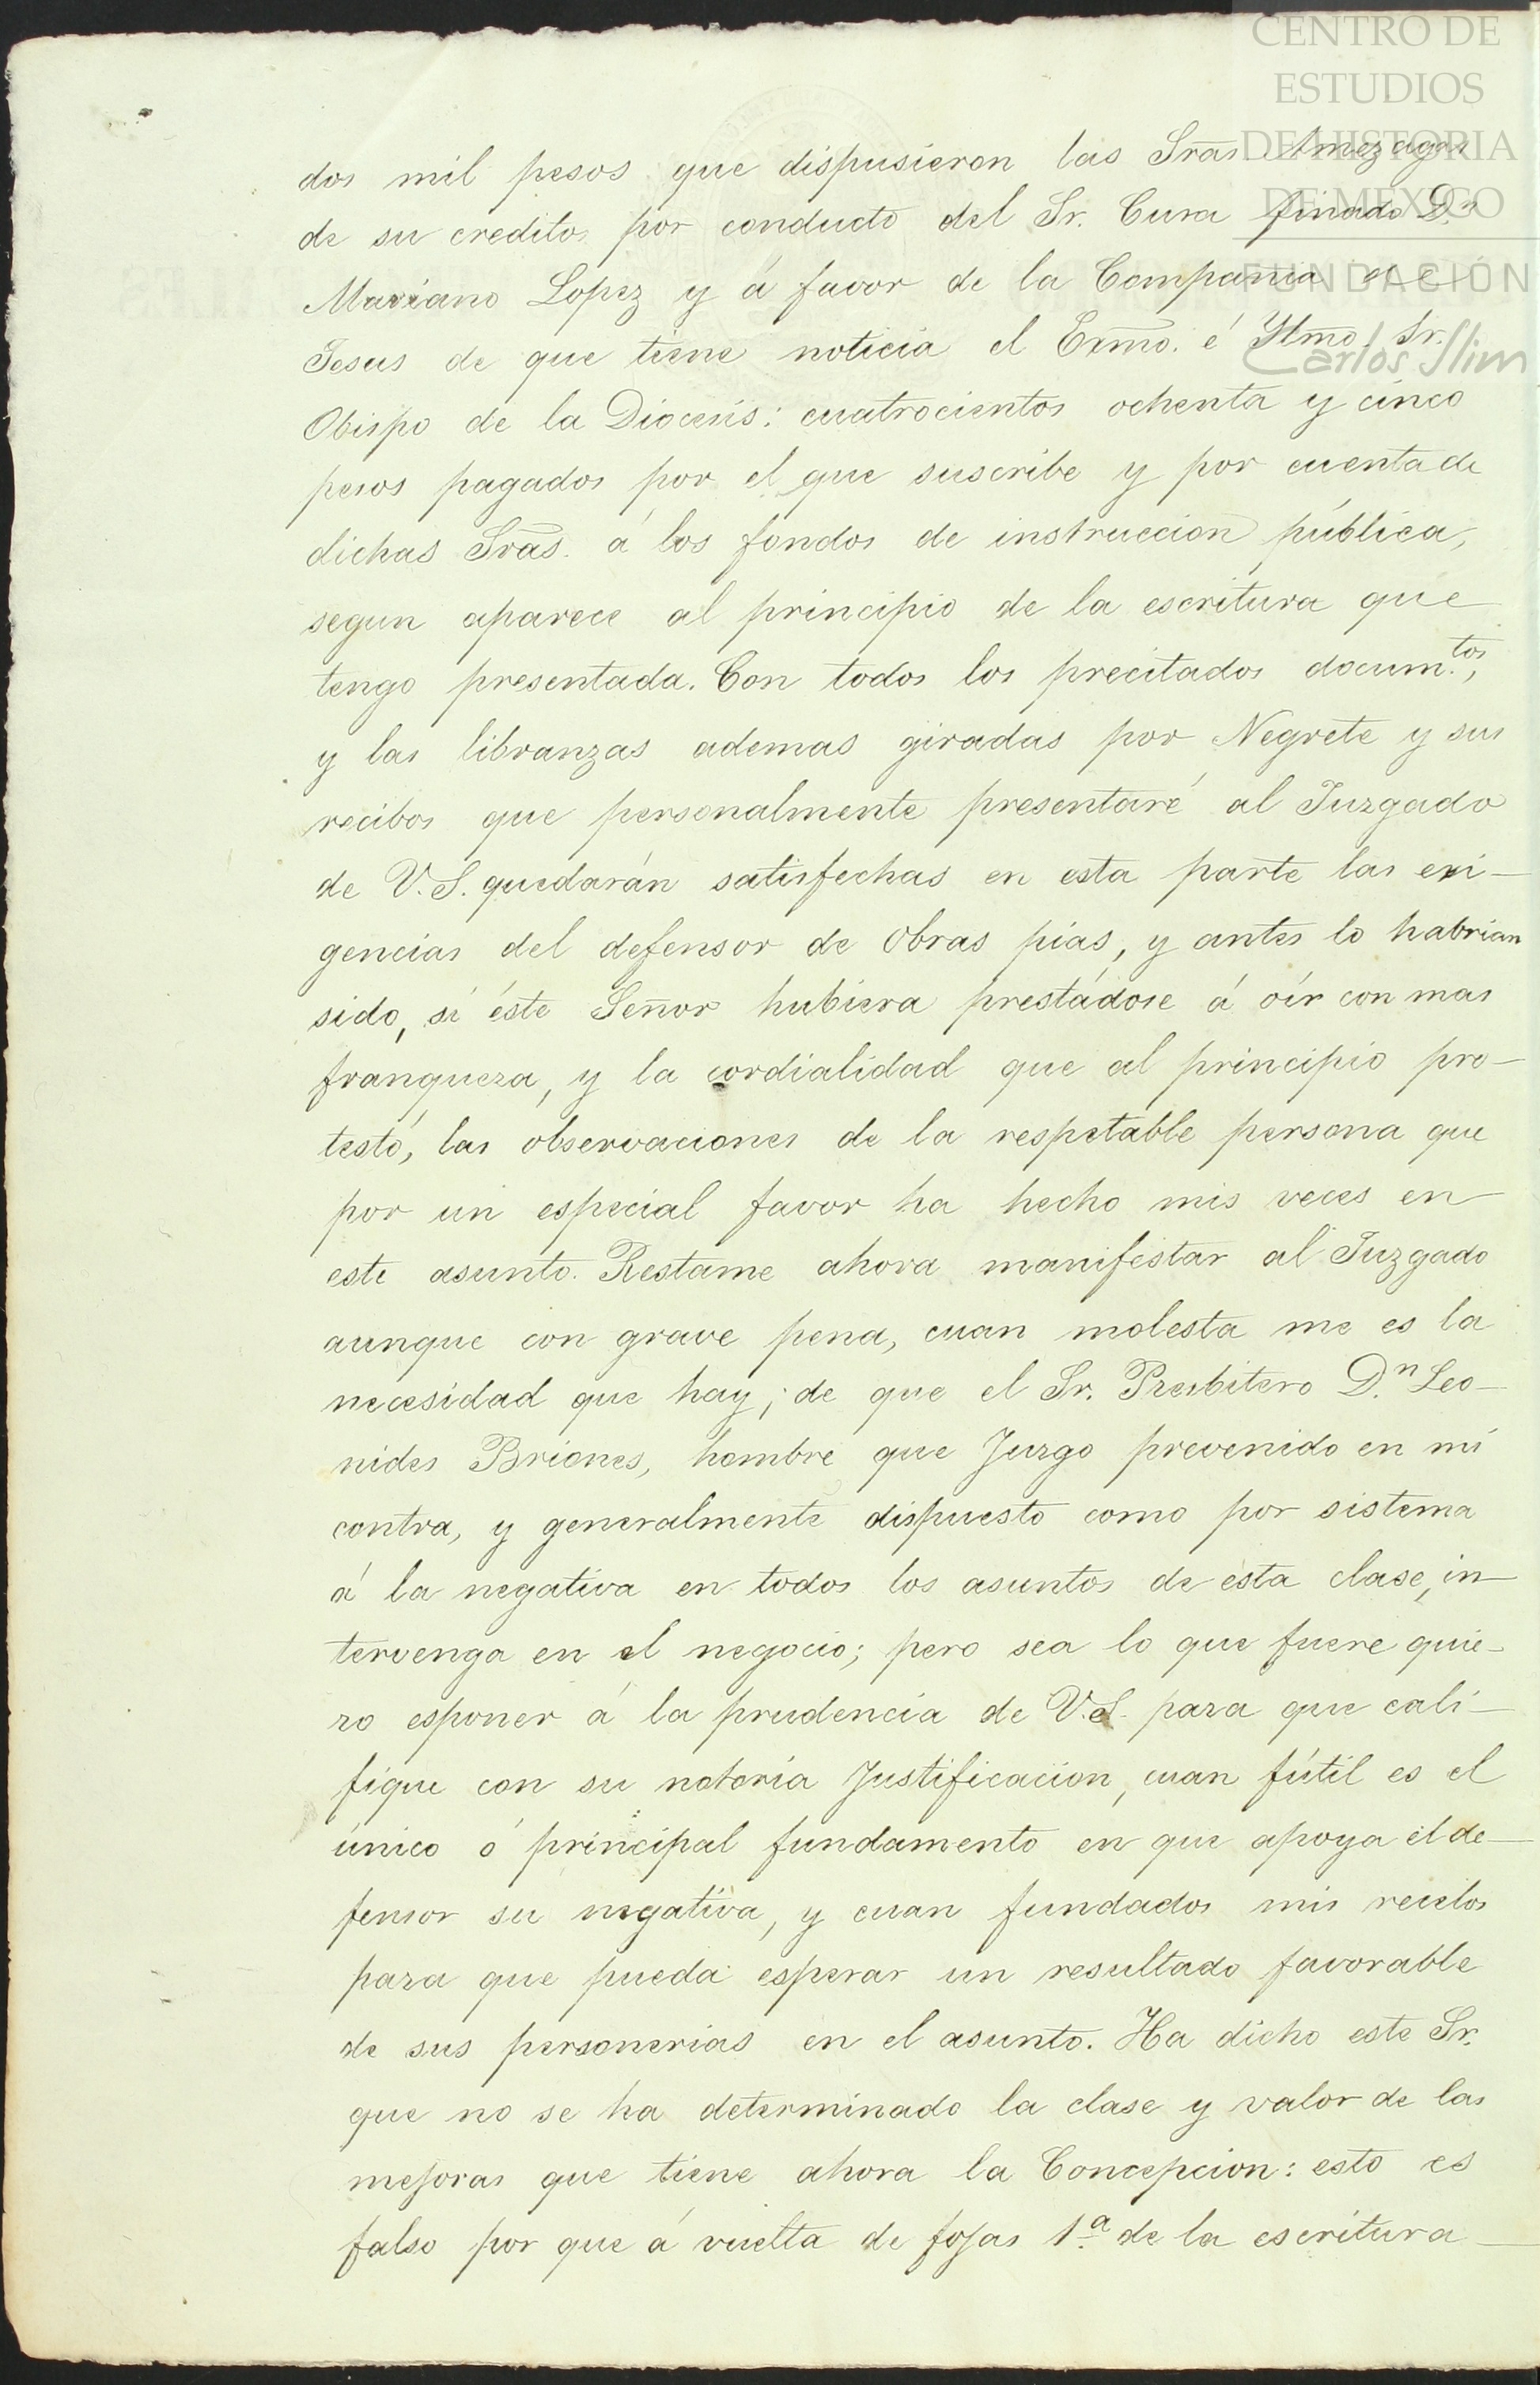 CENTRO DE
ESTUDIOS
DE HISTORIA
DE MÉXICO
FUNDACIÓN
Carlos Slim
dos mil pesos que dispusieron las Sras Amezagas
de su credito por conducto del Sr. Cura finado Dn
Mariano Lopez y á favor de la Compañia de
Jesus de que tiene noticia el Exmo. é Yltmo. Sr.
Obispo de la Diocesis: cuatrocientos ochenta y cinco
pesos pagados por el que suscribe y por cuenta de
dichas Sras. á los fondos de instruccion pública,
segun aparece al principio de la escritura que
tengo presentada. Con todos los precitados docum.tos,
y las libranzas ademas giradas por Negrete y sus
recibos que personalmente presentaré al Juzgado
de V.S. quedarán satisfechas en esta parte las exi-
gencias del defensor de obras pias, y antes lo habrian
sido, si éste Señor hubiera prestádose á oír con mas
franqueza, y la cordialidad que al principio pro-
testó, las observaciones de la respetable persona que
por un especial favor ha hecho mis veces en
este asunto. Restame ahora manifestar al Juzgado
aunque con grave pena, cuan molesta me es la
necesidad que hay; de que el Sr. Presbitero D.n Leo-
nides Briones, hombre que Juzgo prevenido en mi
contra, y generalmente dispuesto como por sistema
á la negativa en todos los asuntos de esta clase, in-
tervenga en el negocio; pero sea lo que fuere quie-
ro esponer á la prudencia de V.S. para que cali-
fique con su notoria Justificacion, cuan fútil es el
único ó principal fundamento en que apoya el de-
fensor su negativa, y cuan fundados mis recelos
para que pueda esperar un resultado favorable
de sus personerias en el asunto. Ha dicho este Sr.
que no se ha determinado la clase y valor de las
mejoras que tiene ahora la Concepcion: esto es
falso por que á vuelta de fojas 1.a de la escritura